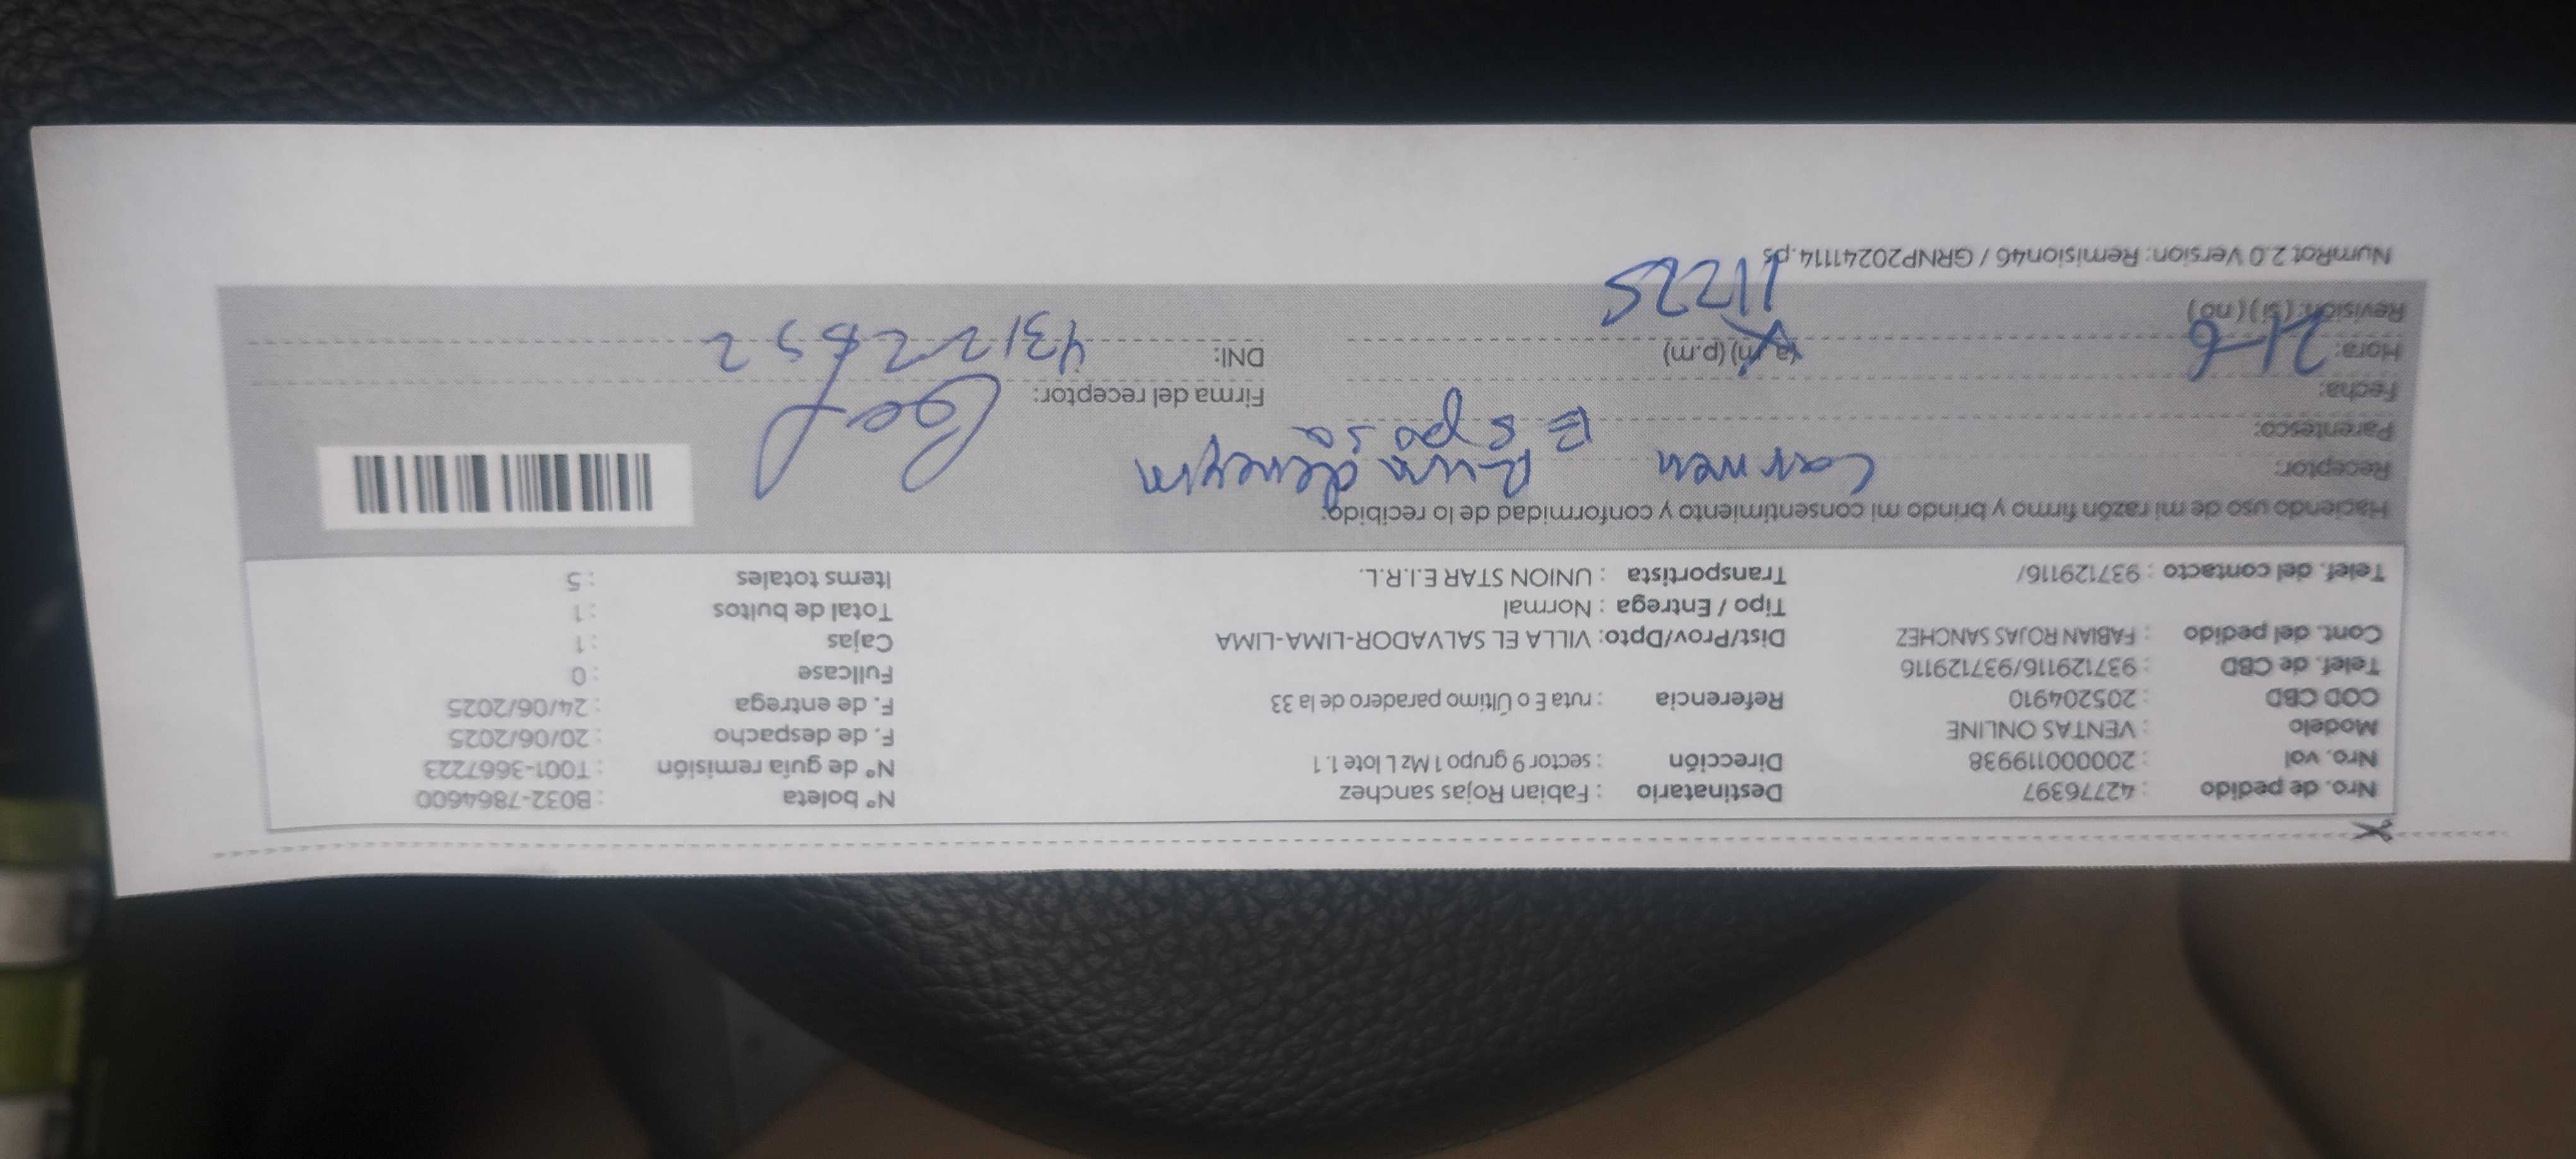 Nro. de pedido : 42776397 Destinatario : Fabian Rojas sanchez N° boleta : B032-7864600
Nro. vol : 20000119938 Dirección : sector 9 grupo 1 Mz L lote 1.1 N° de guía remisión : T001-3667223
Modelo : VENTAS ONLINE F. de despacho : 20/06/2025
COD CBD : 205204910 Referencia : ruta E o Último paradero de la 33 F. de entrega : 24/06/2025
Telef. de CBD : 937129116/937129116 Fullcase : 0
Cont. del pedido : FABIAN ROJAS SANCHEZ Dist/Prov/Dpto: VILLA EL SALVADOR-LIMA-LIMA Cajas : 1
Tipo / Entrega : Normal Total de bultos : 1
Telef. del contacto : 937129116/ Transportista : UNION STAR E.I.R.L. Items totales : 5
Haciendo uso de mi razón firmo y brindo mi consentimiento y conformidad de lo recibido:
Receptor: Carmen
Parentesco: Esposa
Fecha: 21-6 Firma del receptor:
Hora: (a.m) (p.m) DNI: 43122652
Revisión: (si) (no) 11225
NumRot 2.0 Version: Remision46 / GRNP20241114.ps